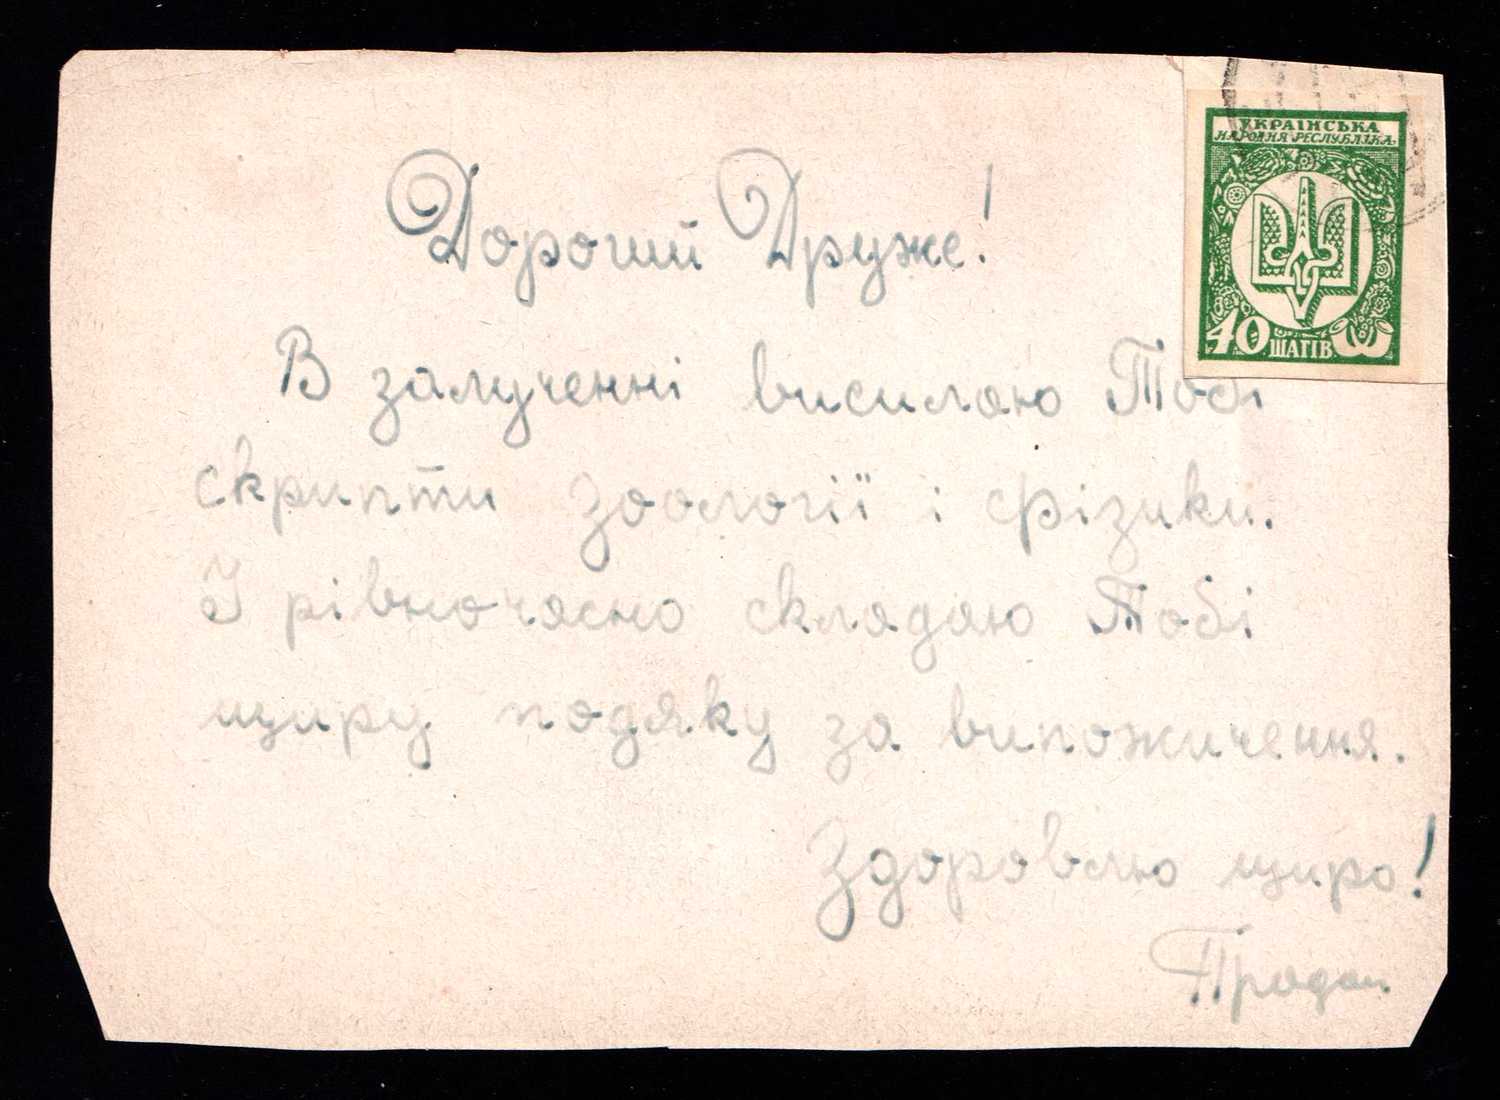 УКРАЇНСЬКА
НАРОДНЯ РЕСПУБЛІКА
40 ШАГІВ
Дорогий Друже!
В залученні висилаю Тобі
скрипти зоології і фізики.
І рівночасно складаю Тобі
щиру подяку за випожичення.
Здоровлю щиро!
Продан